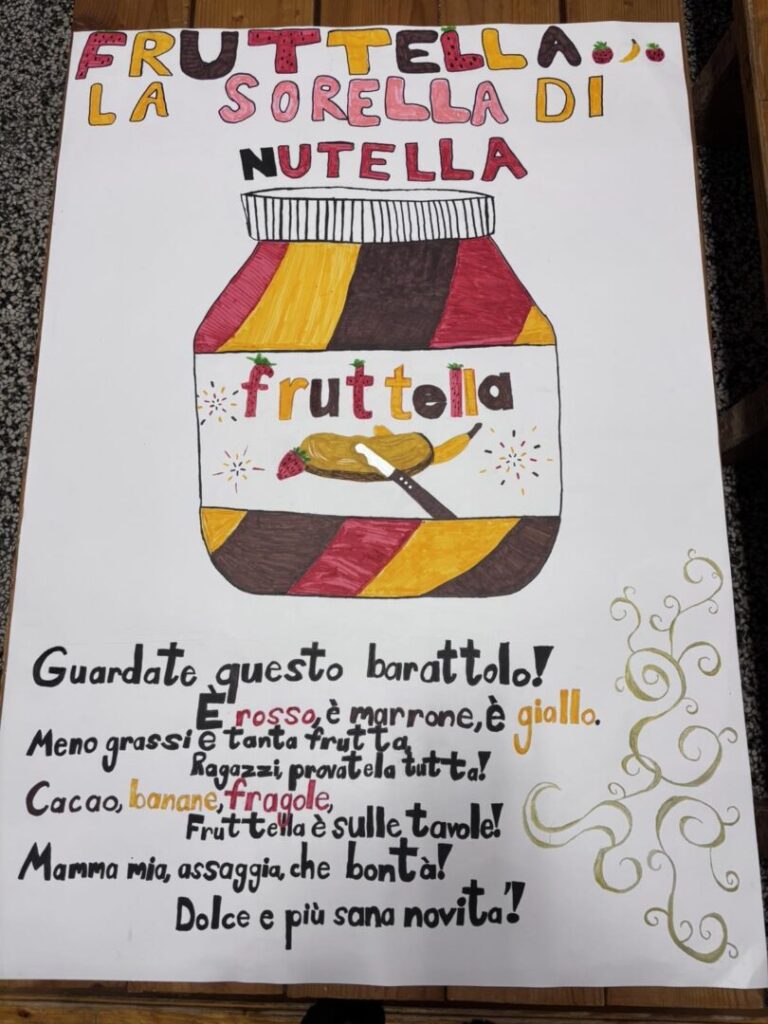 FRUTTELLA
LA SORELLA DI
NUTELLA
fruttella
Guardate questo barattolo!
È rosso, è marrone, è giallo.
Meno grassi e tanta frutta,
Ragazzi, provatela tutta!
Cacao, banane, fragole,
Fruttella è sulle tavole!
Mamma mia, assaggia, che bontà!
Dolce e più sana novita'!